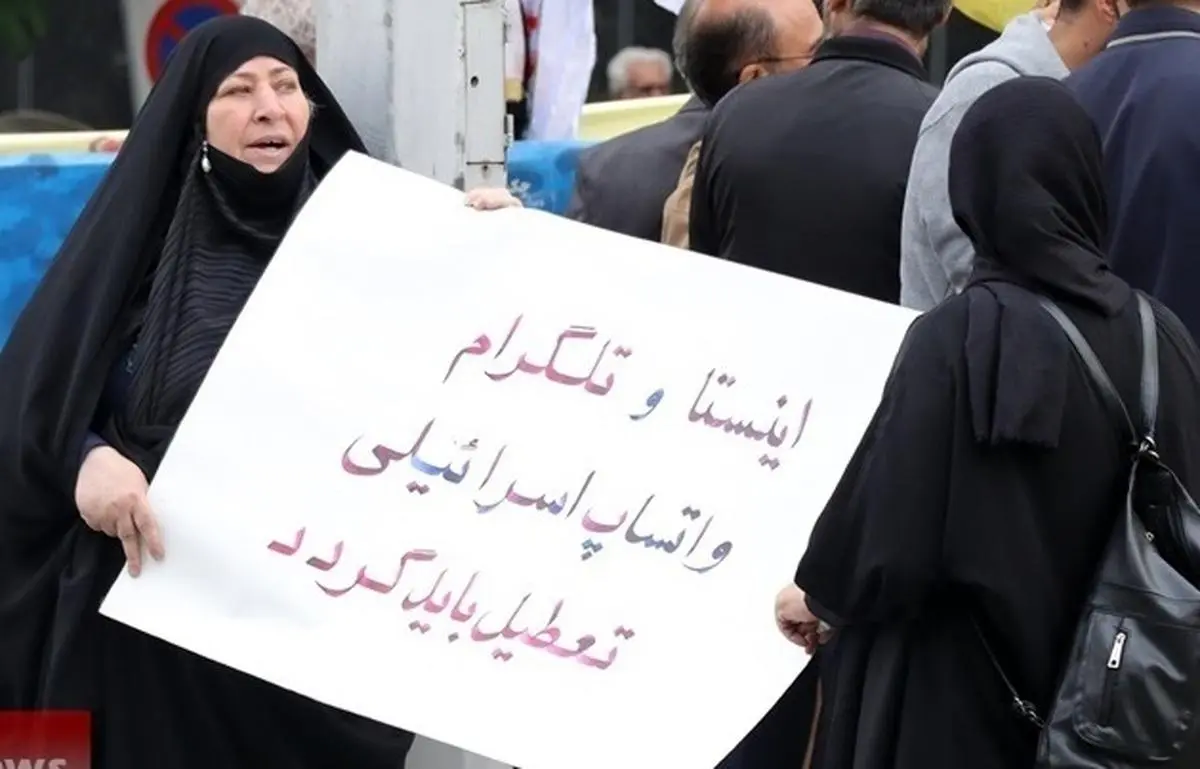 اینستا و تلگرام
واتساپ اسرائیلی
تعطیل باید گردد
ews